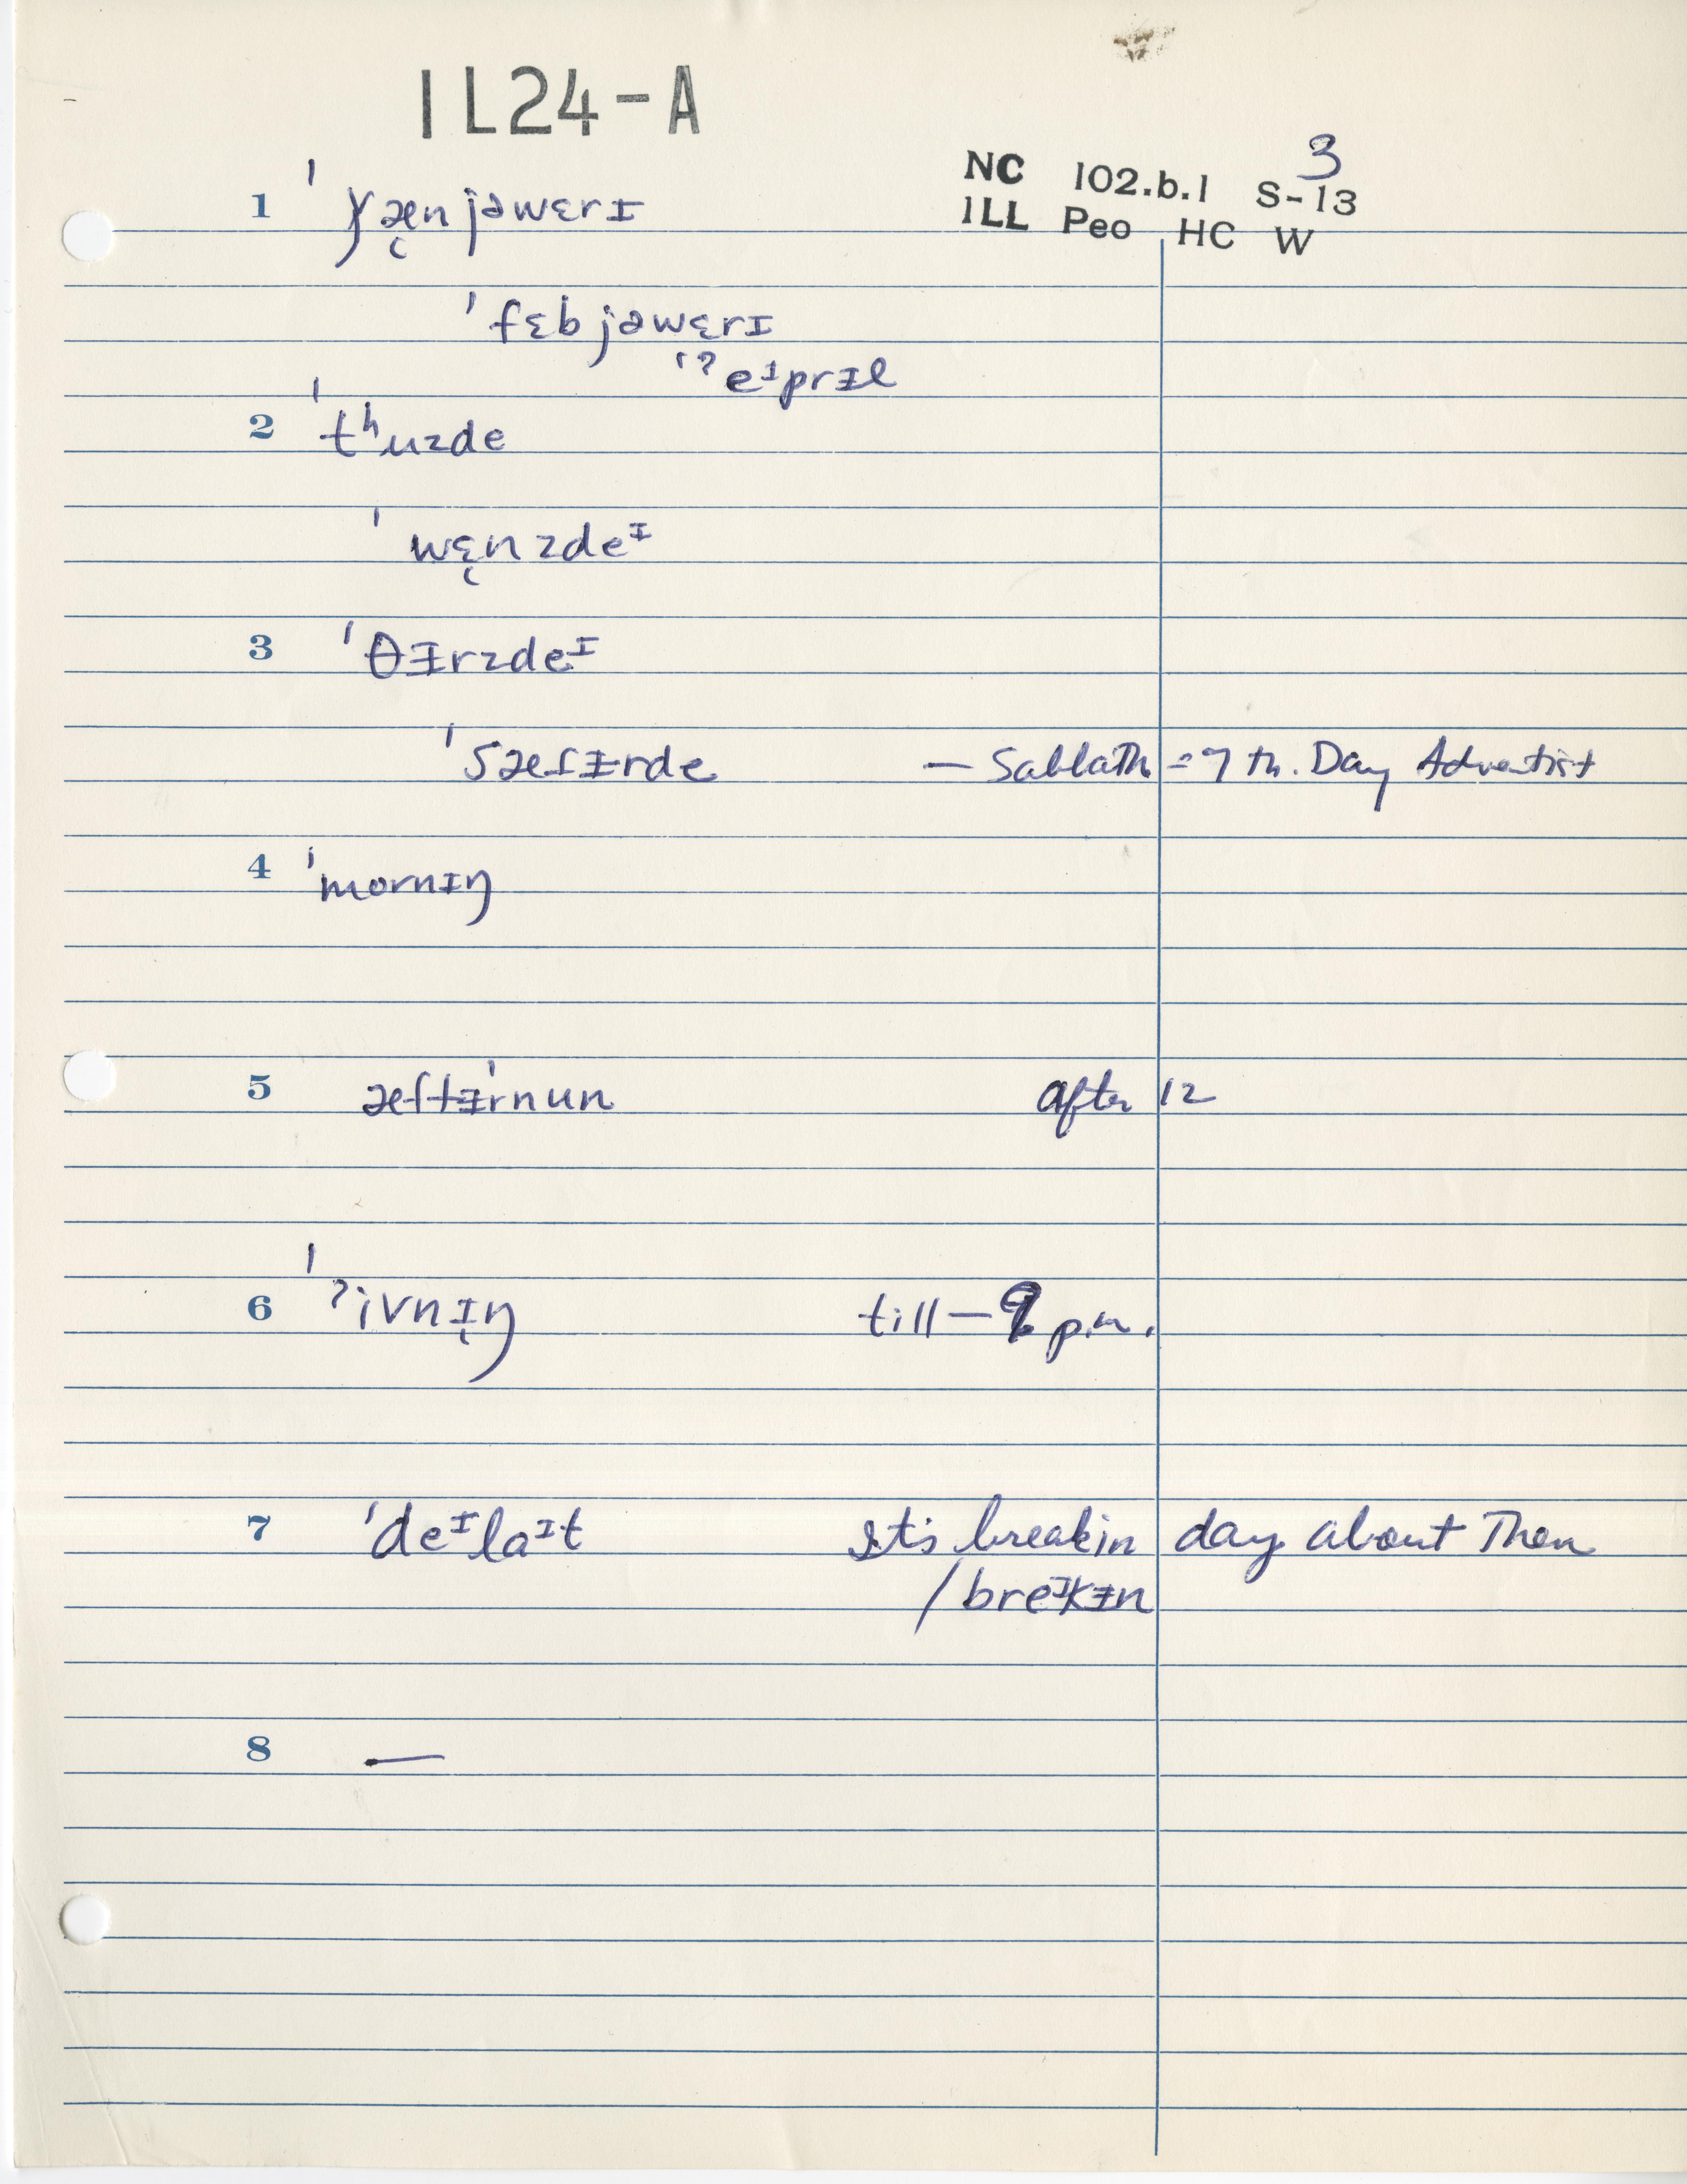 IL24-A
3
NC 102.b.1 S-13
ILL Peo HC W
1 ˈɣæ̨njəwɛrɪ
ˈfɛbjəwɛrɪ
ˈʔeᶦprɪl
2 ˈtʰuzde
ˈwɛ̨nzdeᶦ
3 ˈθɪrzdeᶦ
ˈsæɾɨrde — Sabbath = 7th. Day Adventist
4 ˈmornɪŋ
5 æftɨrˈnun after 12
6 ˈʔivnɪ̨ŋ till — 9 p.m.
7 ˈdeᶦlaᶦt It's breakin day about then
/breᶦkɨn
8 —